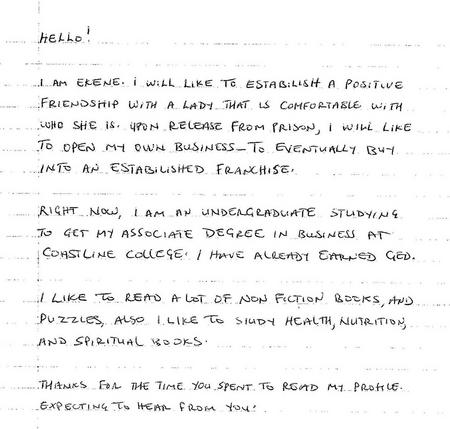 HELLO!
I AM EKENE. I WILL LIKE TO ESTABILISH A POSITIVE
FRIENDSHIP WITH A LADY THAT IS COMFORTABLE WITH
WHO SHE IS. UPON RELEASE FROM PRISON, I WILL LIKE
TO OPEN MY OWN BUSINESS - TO EVENTUALLY BUY
INTO AN ESTABILISHED FRANCHISE.
RIGHT NOW, I AM AN UNDERGRADUATE STUDYING
TO GET MY ASSOCIATE DEGREE IN BUSINESS AT
COASTLINE COLLEGE. I HAVE ALREADY EARNED GED.
I LIKE TO READ A LOT OF NON FICTION BOOKS, AND
PUZZLES, ALSO I LIKE TO STUDY HEALTH, NUTRITION,
AND SPIRITUAL BOOKS.
THANKS FOR THE TIME YOU SPENT TO READ MY PROFILE.
EXPECTING TO HEAR FROM YOU!